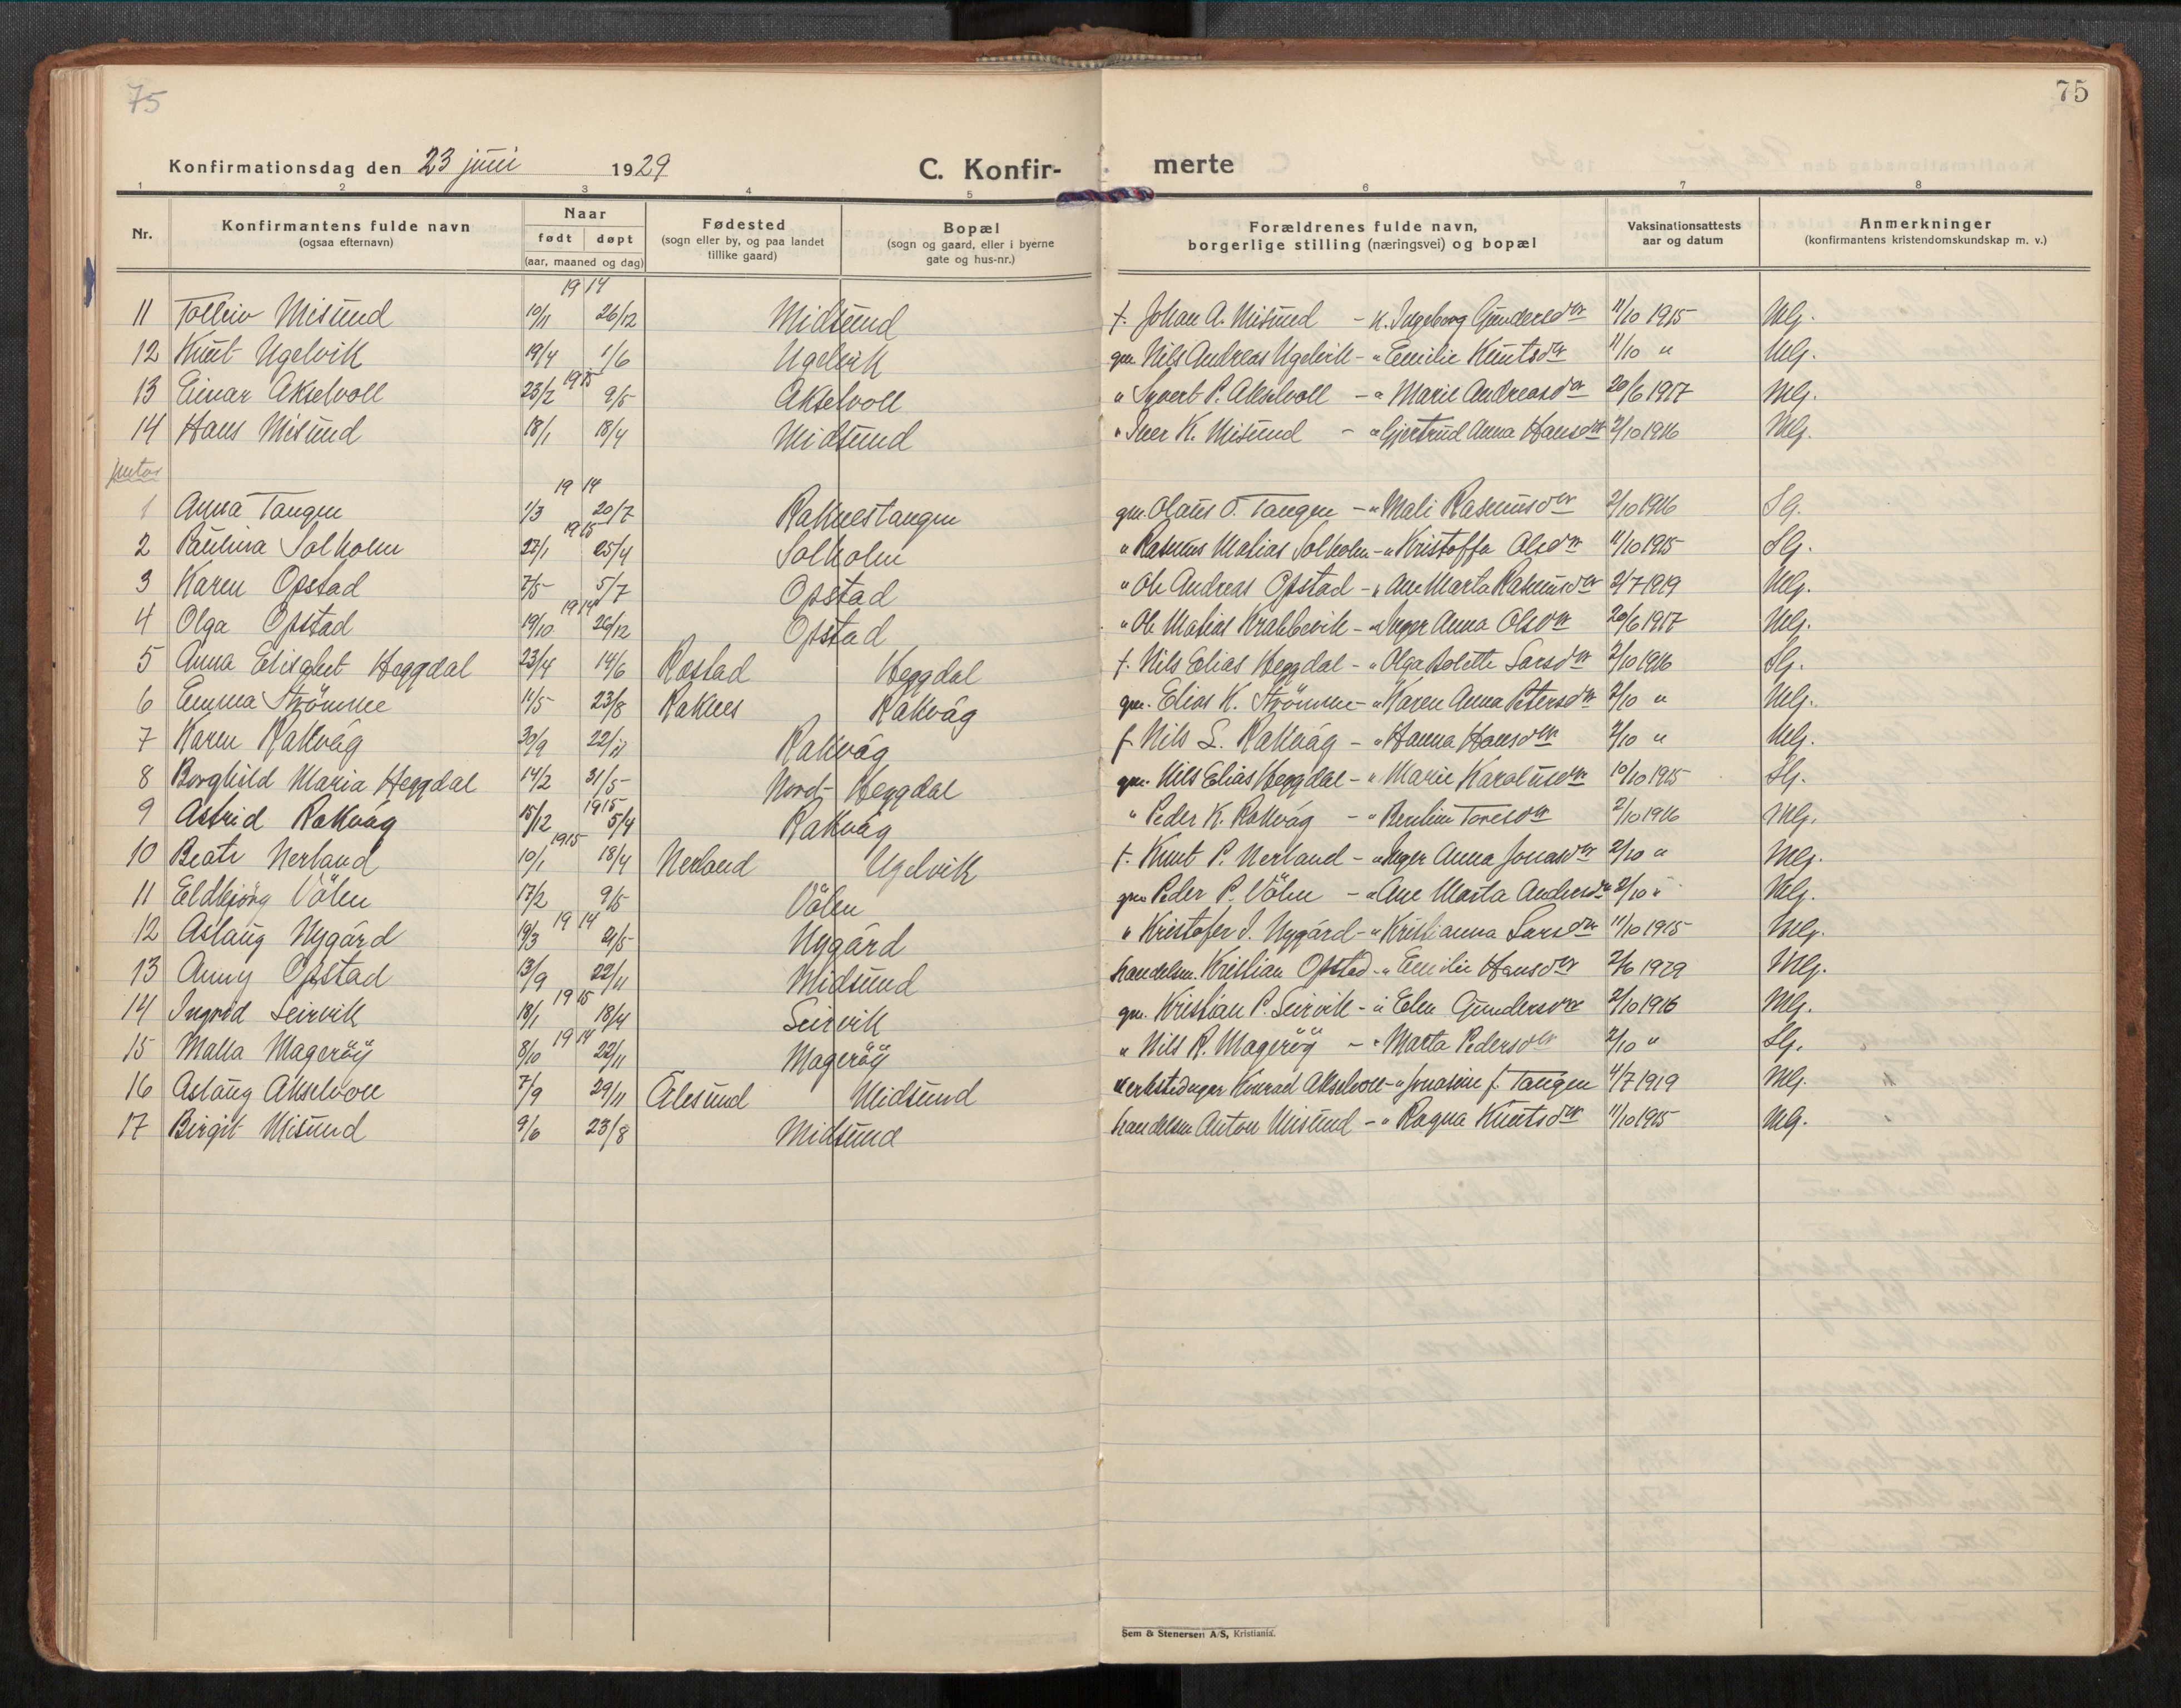 75
75
Konfirmationsdag den 23 juni 1929
C. Konfir- merte
1 2 3 4 5 6 7 8
Nr.
Konfirmantens fulde navn
(ogsaa efternavn)
Naar
født døpt
(aar, maaned og dag)
Fødested
(sogn eller by, og paa landet
tillike gaard)
Bopæl
(sogn og gaard, eller i byerne
gate og hus-nr.)
Forældrenes fulde navn,
borgerlige stilling (næringsvei) og bopæl
Vaksinationsattests
aar og datum
Anmerkninger
(konfirmantens kristendomskundskap m. v.)
1914
11 Tolleiv Misund 10/11 26/12 Midsund f. Johan A. Misund - k. Ingeborg Gundersdtr 11/10 1915 Mg.
12 Knut Ugelvik 19/4 1/6 Ugelvik gm. Nils Andreas Ugelvik - " Emilie Knutsdtr 11/10 " Mg.
1915
13 Einar Akselvoll 23/2 9/5 Akselvoll " Syvert P. Akselvoll - " Marie Andreasdtr 20/6 1917 Mg.
14 Hans Misund 18/1 18/4 Midsund " Iver K. Misund - " Gjertrud Anna Hansdtr 2/10 1916 Mg.
jentor
1914
1 Anna Tangen 1/3 20/7 Raknestangen gm. Olaus O. Tangen - " Mali Rasmusdtr 2/10 1916 Sg.
1915
2 Paulina Solholm 22/1 25/4 Solholm " Rasmus Matias Solholm - " Kristoffa Olsdtr 11/10 1915 Sg.
3 Karen Opstad 7/5 5/7 Opstad " Ole Andreas Opstad - " Ane Marta Rasmusdtr 2/7 1919 Mg.
1914
4 Olga Opstad 19/10 26/12 Opstad " Ole Matias Krabbevik - " Inger Anna Olsdtr 20/6 1917 Mg.
5 Anna Elisabet Heggdal 23/4 14/6 Rostad Heggdal f. Nils Edias Heggdal - " Olga Bolette Larsdtr 2/10 1916 Sg.
6 Emma Strömme 11/5 23/8 Raknes Rakvåg gm. Elias K. Strömme - " Karen Anna Petersdtr 2/10 " Mg.
7 Karen Rakvåg 30/9 22/11 Rakvåg f. Nils L. Rakvåg - " Hanna Hansdtr 2/10 " Mg.
8 Borghild Maria Heggdal 14/2 31/5 Nord-Heggdal gm. Nils Elias Heggdal - " Marie Karolusdtr 10/10 1915 Sg.
1915
9 Astrid Rakvåg 15/12 5/4 Rakvåg " Peder K. Rakvåg - " Berntine Toresdtr 2/10 1916 Mg.
1915
10 Beate Nerland 10/1 18/4 Nerland Ugelvik f. Knut P. Nerland - " Inger Anna Jonasdtr 2/10 " Mg.
11 Eldbjörg Völen 17/2 9/5 Völen gm. Peder P. Völen - " Ane Marta Andersdtr 2/10 " Mg.
1914
12 Aslaug Nygård 19/3 21/5 Nygård " Kristofer I. Nygård - " Kristianna Larsdtr 11/10 1915 Mg.
13 Anny Opstad 13/9 22/11 Midsund handelsm. Kristian Opstad - " Emilie Hansdtr 2/6 1929 Mg.
1915
14 Ingrid Seirvik 18/1 18/4 Seirvik gm. Kristian P. Seirvik - " Elen Gundersdtr 2/10 1916 Mg.
1914
15 Malla Magerøy 8/10 22/11 Magerøy " Nils R. Magerøy - " Marta Pedersdtr 2/10 " Sg.
16 Aslaug Akselvoll 7/9 29/11 Ålesund Midsund verkstedager Konrad Akselvoll - " Jonasine f. Tangen 4/7 1919 Mg.
17 Birgit Misund 9/6 23/8 Midsund handelsm. Anton Misund - " Ragna Knutsdtr 11/10 1915 Mg.
Sem & Stenersen A/S, Kristiania.